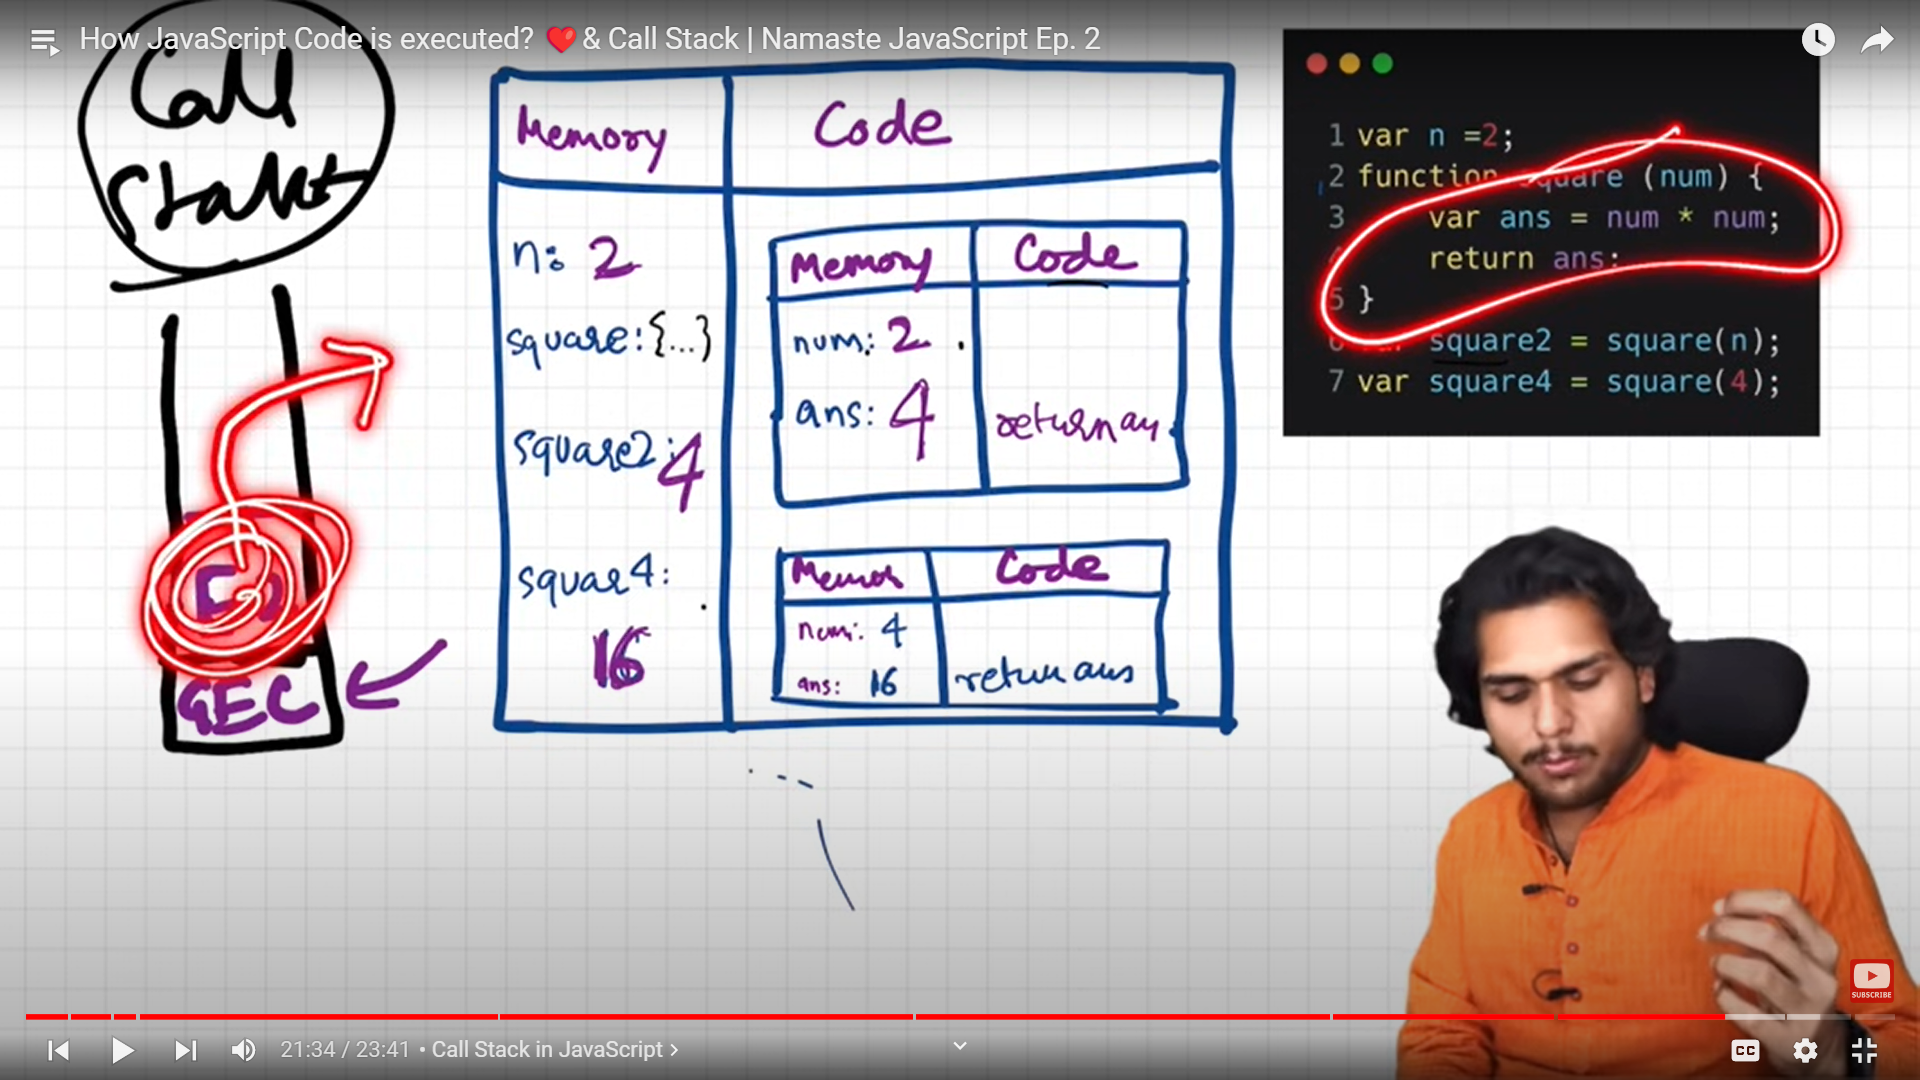 How JavaScript Code is executed? ❤️& Call Stack | Namaste JavaScript Ep. 2
Call
Stakt
GEC
Memory
Code
n: 2
square: {...}
square2: 4
squar4:
16
Memory
Code
num: 2
ans: 4
return an
Memor
Code
num: 4
ans: 16
return ans
1 var n =2;
2 function square (num) {
3 var ans = num * num;
return ans;
5 }
6 var square2 = square(n);
7 var square4 = square(4);
SUBSCRIBE
21:34 / 23:41 • Call Stack in JavaScript ›
CC